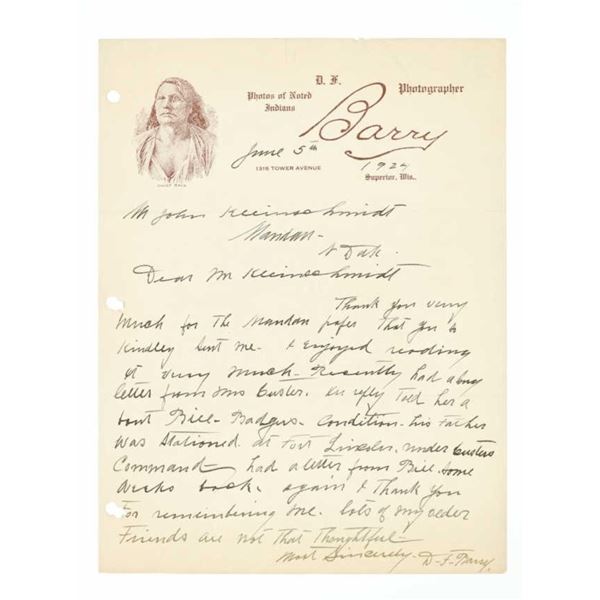 D. F.
Photos of Noted
Indians
Photographer
Barry
June 5th
1316 TOWER AVENUE
1924
Superior, Wis.,
Mr John Kleinschmidt
Mandan
N Dak.
Dear Mr Kleinschmidt
Thank you very
much for The Mandan paper That you so
Kindley sent me. I enjoyed reading
it very much - Recently had a long
letter from Mrs Custer. in reply Told her a
bout Bill - Badgus - Condition. his Father
was stationed at Fort Lincoln. under Custers
Command had a letter from Bill some
weeks back. again I Thank you
For remembering me. lots of my older
Friends are not That Thoughtful -
Most Sincerely - D-F-Barry.